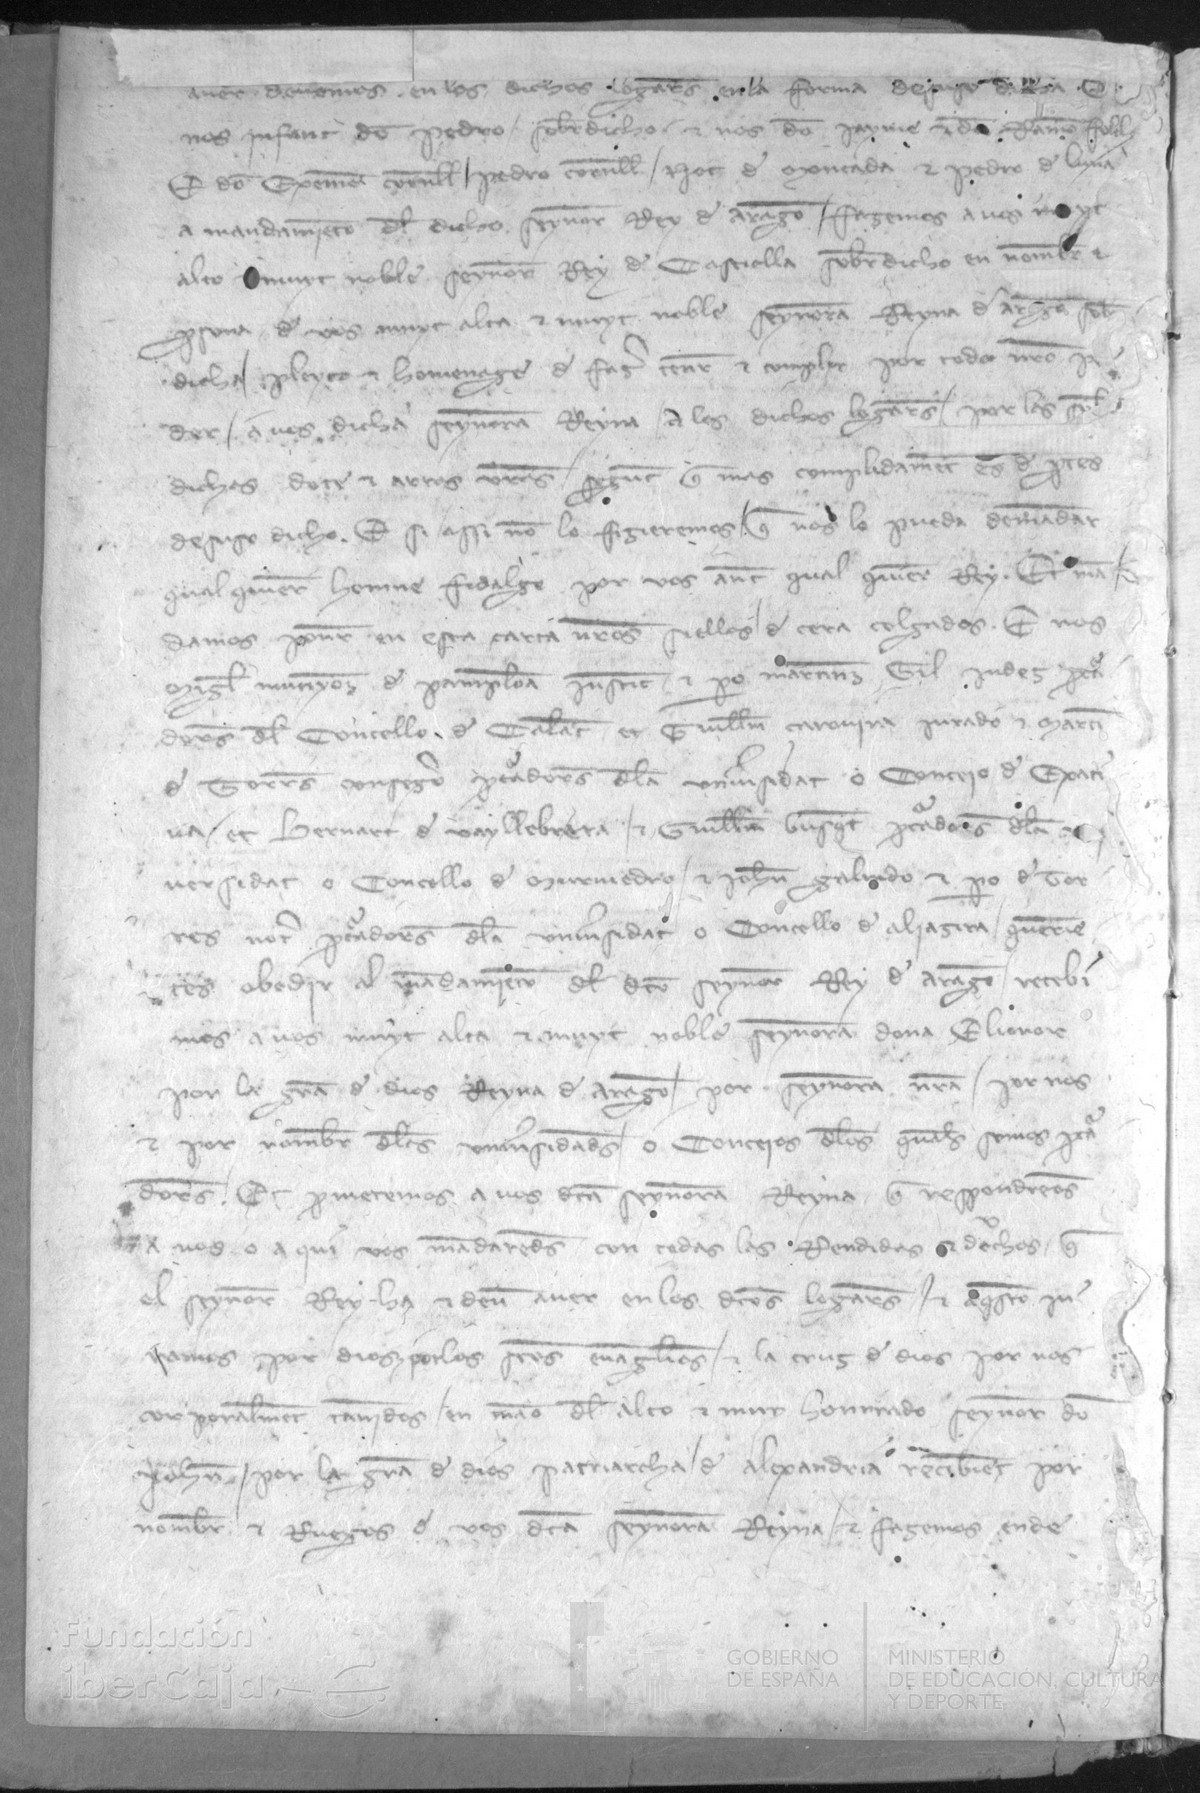 auer deuemos en los dichos logars en la forma desuso dicha E
nos jnfant do Pedro sobredicho & nos do Jayme & do Ramo folch
E do Exeme cornell / Pedro cornell / Not de Moncada & Pedro de luna
a mandamieto dl dicho seynor Rey de Arago / fazemos a uos muyt
alto & muyt noble seynor Rey de Castiella sobredicho en nombr &
psona de uos muyt alta & muyt noble seynora Reyna d arago sobr
dicha / pleyto & homenage de fazer tenr & complir por todo nro po
der / a uos dicha seynora Reyna / A los dichos logars / por las sobr
dichas dote & arras vras / segunt q mas complidamet es de ptes
desuso dicho. E si assi no lo fizieremos / q nos lo pueda demadar
qual quier homne fidalgo por uos ant qual quier Rey. Et ma
damos poner en esta carta nros siellos de cera colgados. E nos
Migl munyoz de pamploa justic & po martinz Gil judez pcura
dors dl Concello de Calat et Guillm carouira jurado & Marti
de Torrs consegero pcuradors dla vniuersidat o Conceio de Exati
ua / et Bernart de vayllebrera / & Guillm busqt pcuradors dla
uersidat o Concello de Muruiedro / & Johan galindo & po de Tor
res not pcuradors dla vniuersidat o Concello de aliazira / querie
tes obedir al madamieto dl dto seynor Rey de Arago / recebi
mos a uos muyt alta & muyt noble seynora dona Elionor
por la gra de dios Reyna de Arago / por seynora nra / por nos
& por nombr dles vniuersidads o Conceios dlos quals somos pcura
dors. Et prometemos a uos dta seynora Reyna q respondremos
a uos o a qui uos madareds con todas las Rendidas & drechos q
el seynor Rey ha & deue auer en los dtos logars / & aqsto ju
ramos por dios & por los stos euanglios / & la cruz de dios por nos
corporalmet tanidos / en mao dl alto & muy honrrado seynor do
Johan / por la gra de dios patriarcha / de alexandria recibiet por
nombr & Ruegos de vos dta seynora Reyna / & fazemos ende
Fundación
iberCaja
GOBIERNO
DE ESPAÑA
MINISTERIO
DE EDUCACIÓN, CULTURA
Y DEPORTE